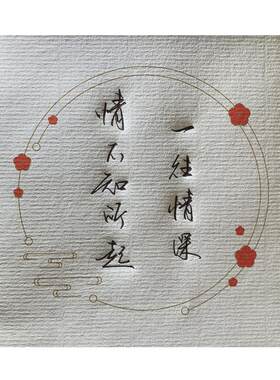 情不知所起
一往情深